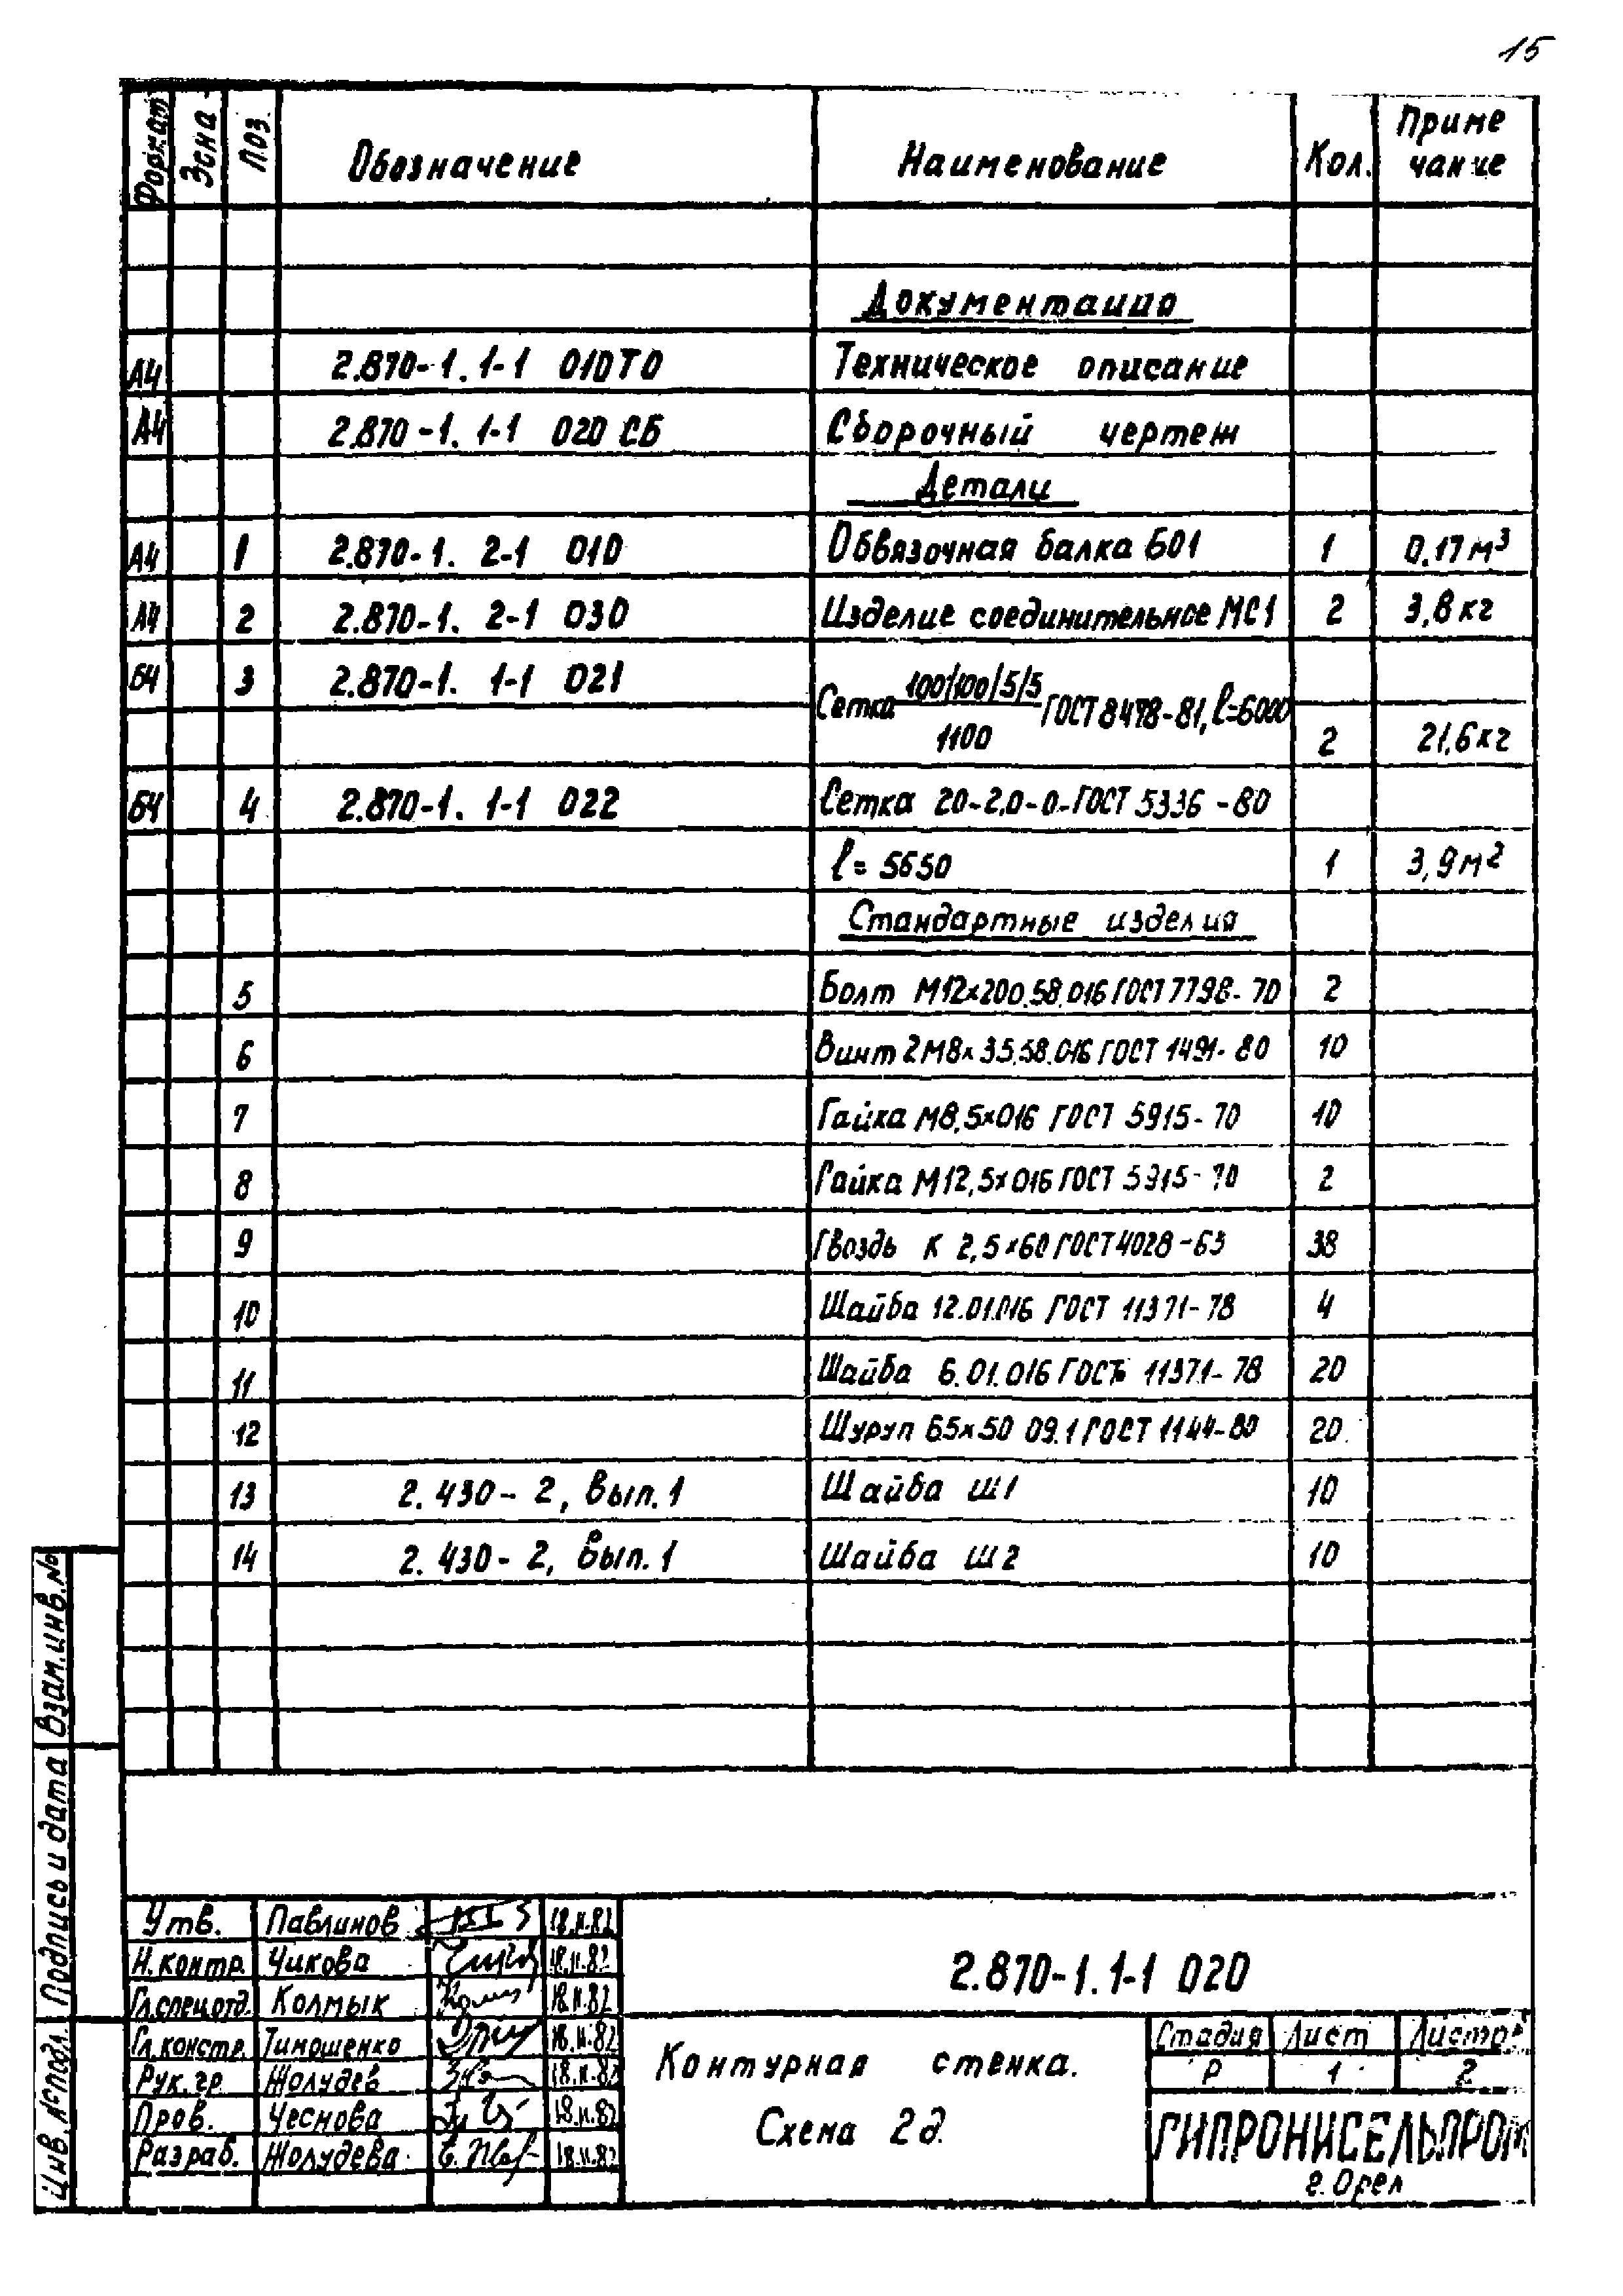 15
Формат Зона Поз. Обозначение Наименование Кол. Приме
чание
Документация
А4 2.870-1.1-1 010ТО Техническое описание
А4 2.870-1.1-1 020 СБ Сборочный чертеж
Детали
А4 1 2.870-1. 2-1 010 Обвязочная балка Б01 1 0,17 м³
А4 2 2.870-1. 2-1 030 Изделие соединительное МС1 2 3,8 кг
БЧ 3 2.870-1. 1-1 021 Сетка 100/100/5/5 ГОСТ 8478-81, ℓ=6000
1100 2 21,6 кг
БЧ 4 2.870-1. 1-1 022 Сетка 20-2,0-0-ГОСТ 5336-80
ℓ = 5650 1 3,9 м²
Стандартные изделия
5 Болт М12×200.58.016 ГОСТ 7798-70 2
6 Винт 2М8×35.58.016 ГОСТ 1491-80 10
7 Гайка М8,5×016 ГОСТ 5915-70 10
8 Гайка М12,5×016 ГОСТ 5915-70 2
9 Гвоздь К 2,5×60 ГОСТ 4028-63 38
10 Шайба 12.01.016 ГОСТ 11371-78 4
11 Шайба 6.01.016 ГОСТ 11371-78 20
12 Шуруп 65×50 09.1 ГОСТ 1144-80 20
13 2.430-2, Вып. 1 Шайба Ш1 10
14 2.430-2, Вып. 1 Шайба Ш2 10
Взам.инв.№
Подпись и дата
Инв. № подл.
Утв. Павлинов 18.11.82
Н.контр. Чикова 18.11.82
Гл.спец.отд. Колмык 18.11.82
Гл.констр. Тимошенко 18.11.82
Рук.гр. Жолудев 18.11.82
Пров. Чеснова 18.11.82
Разраб. Жолудева 18.11.82
2.870-1.1-1 020
Контурная стенка.
Схема 2д.
Стадия Лист Листов
Р 1 2
ГИПРОНИСЕЛЬПРОМ
г. Орел